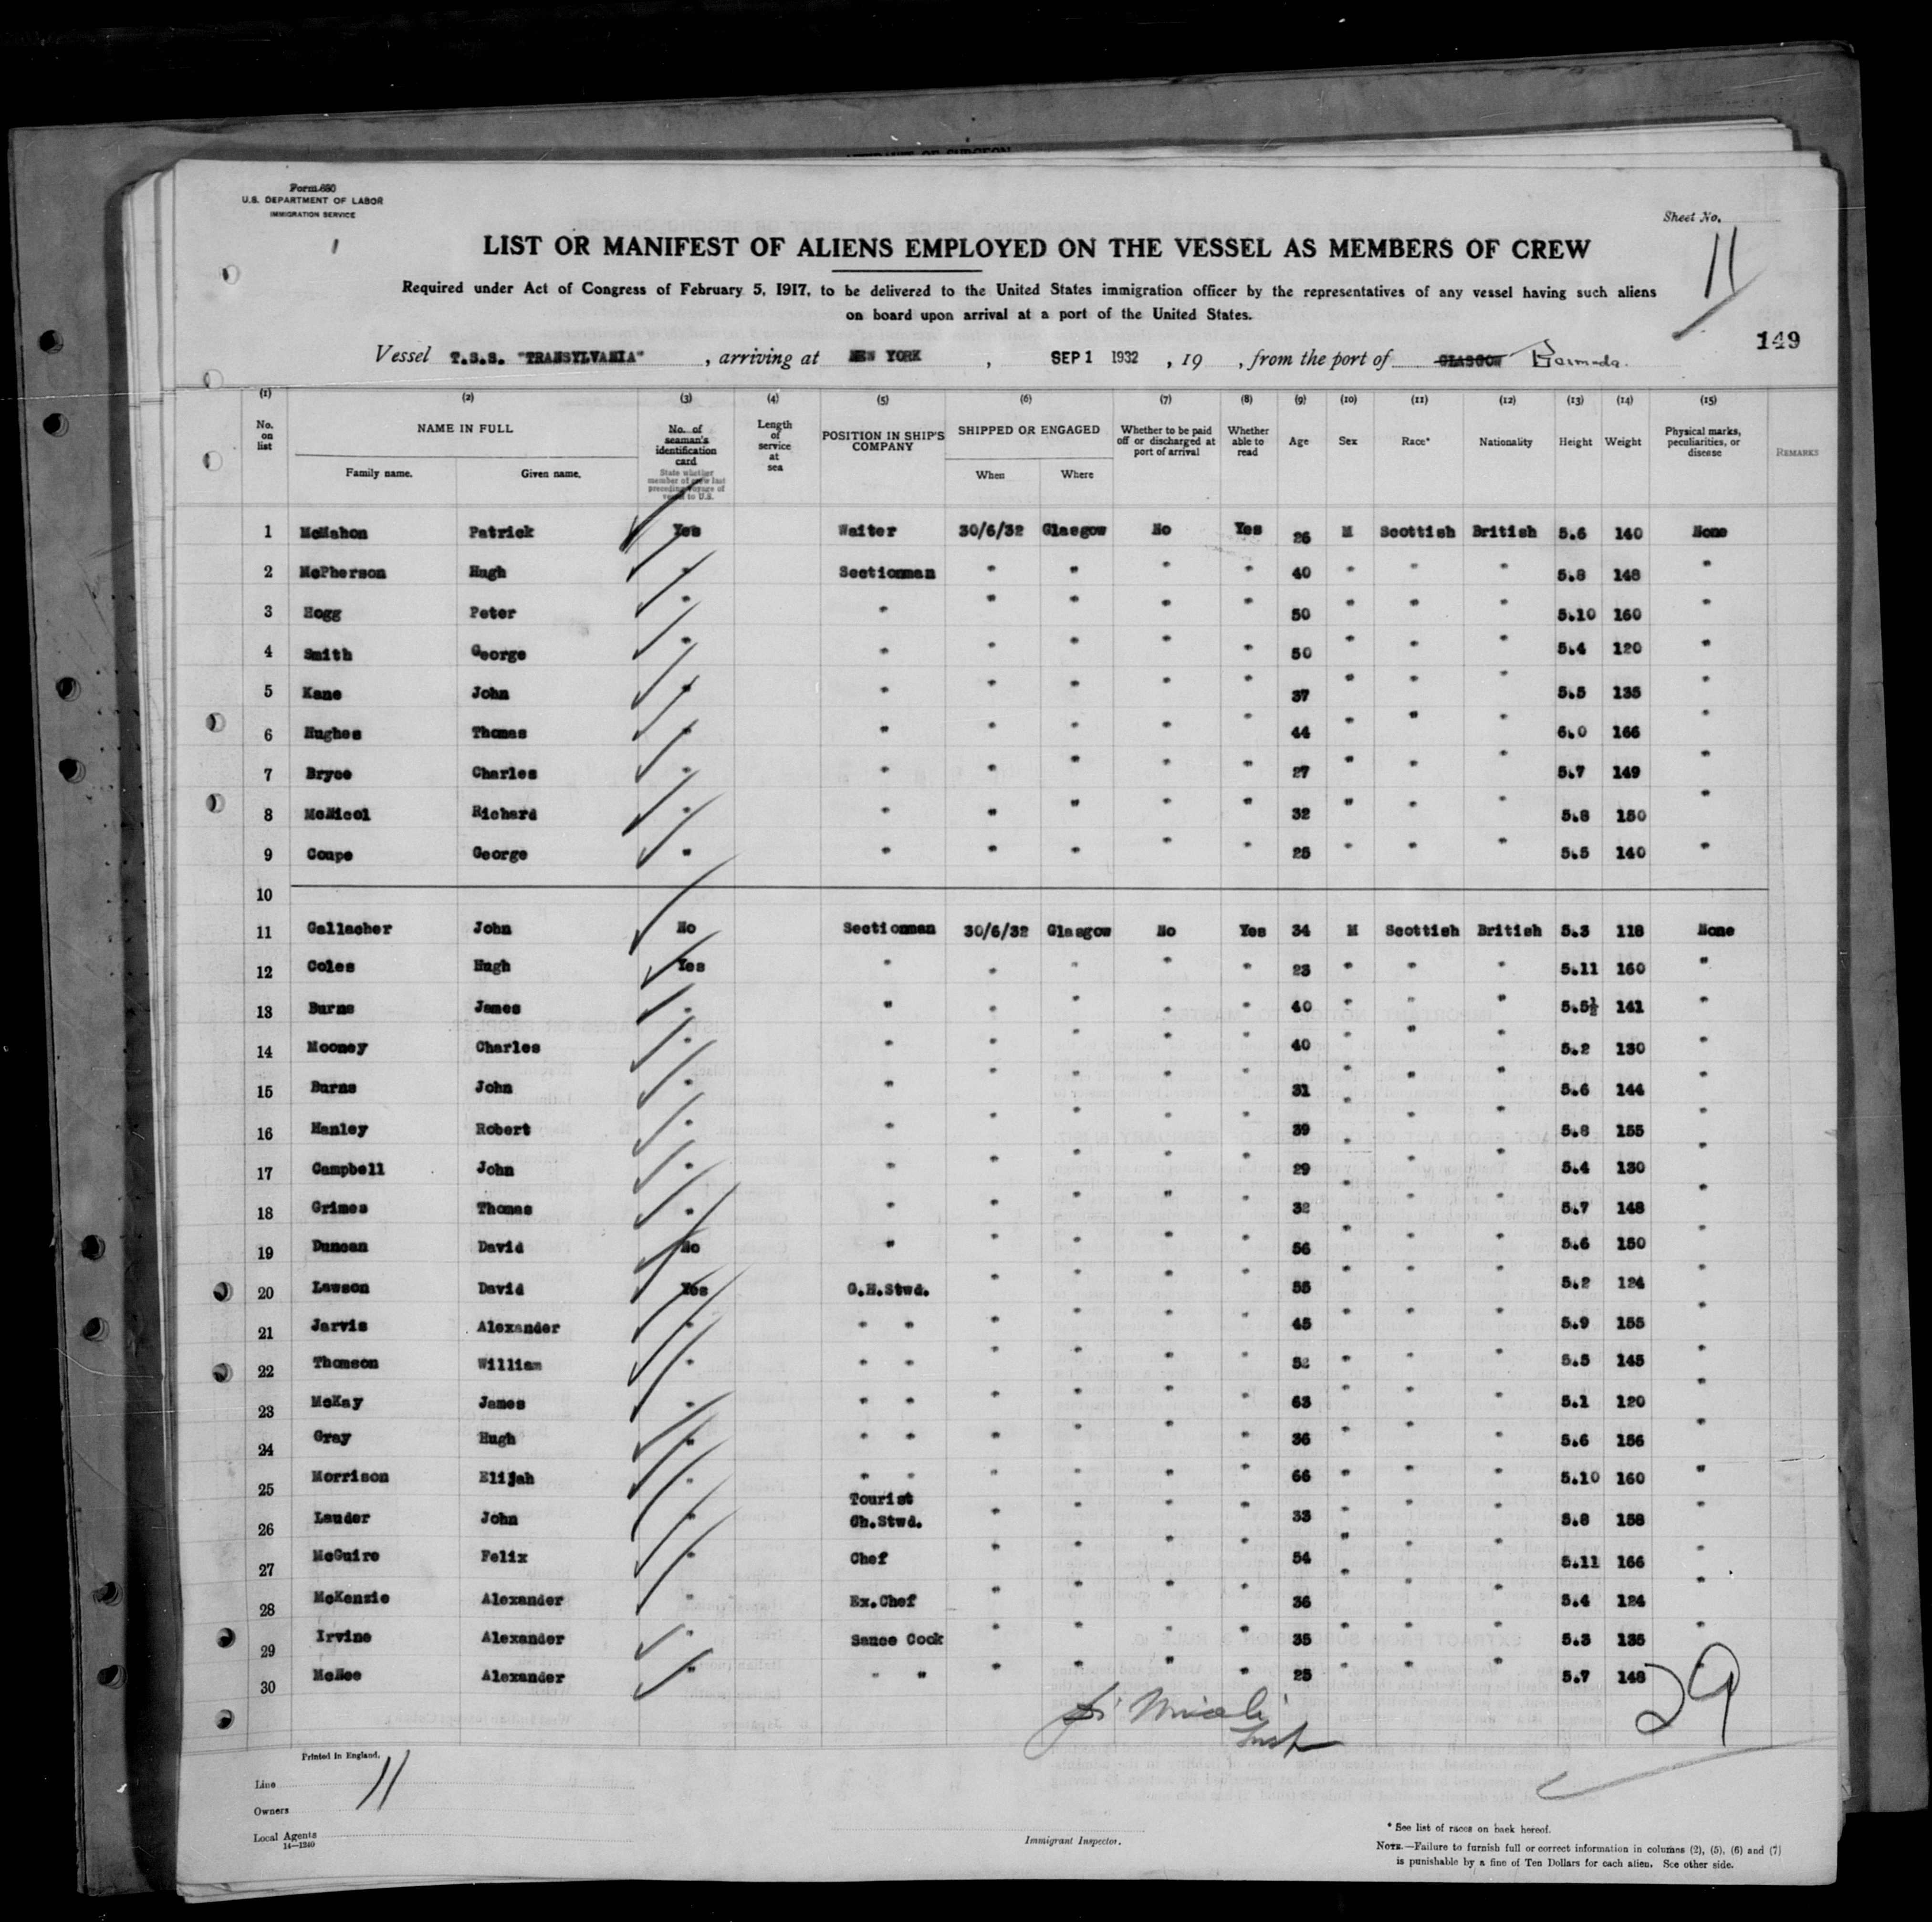 Form 680
U.S. DEPARTMENT OF LABOR
IMMIGRATION SERVICE
Sheet No. 11
LIST OR MANIFEST OF ALIENS EMPLOYED ON THE VESSEL AS MEMBERS OF CREW
Required under Act of Congress of February 5, 1917, to be delivered to the United States immigration officer by the representatives of any vessel having such aliens
on board upon arrival at a port of the United States.
149
Vessel T.S.S. "TRANSYLVANIA", arriving at NEW YORK, SEP 1 1932, 19 , from the port of GLASGOW Bermuda.
(1) (2) (3) (4) (5) (6) (7) (8) (9) (10) (11) (12) (13) (14) (15)
No. on list NAME IN FULL Family name. Given name. No. of seaman's identification card State whether member of crew last preceding voyage of vessel to U.S. Length of service at sea POSITION IN SHIP'S COMPANY SHIPPED OR ENGAGED When Where Whether to be paid off or discharged at port of arrival Whether able to read Age Sex Race* Nationality Height Weight Physical marks, peculiarities, or disease REMARKS
1 McMahon Patrick Yes Waiter 30/6/32 Glasgow No Yes 26 M Scottish British 5.6 140 None
2 McPherson Hugh " Sectionman " " " " 40 " " " 5.8 148 "
3 Hogg Peter " " " " " " 50 " " " 5.10 160 "
4 Smith George " " " " " " 50 " " " 5.4 120 "
5 Kane John " " " " " " 37 " " " 5.5 135 "
6 Hughes Thomas " " " " " " 44 " " " 6.0 166 "
7 Bryce Charles " " " " " " 27 " " " 5.7 149 "
8 McNicol Richard " " " " " " 32 " " " 5.8 150 "
9 Coupe George " " " " " " 25 " " " 5.5 140 "
10
11 Gallacher John No Sectionman 30/6/32 Glasgow No Yes 34 M Scottish British 5.3 118 None
12 Coles Hugh Yes " " " " " 23 " " " 5.11 160 "
13 Burns James " " " " " " 40 " " " 5.5½ 141 "
14 Mooney Charles " " " " " " 40 " " " 5.2 130 "
15 Burns John " " " " " " 31 " " " 5.6 144 "
16 Hanley Robert " " " " " " 39 " " " 5.8 155 "
17 Campbell John " " " " " " 29 " " " 5.4 130 "
18 Grimes Thomas " " " " " " 32 " " " 5.7 148 "
19 Duncan David No " " " " " 56 " " " 5.6 150 "
20 Lawson David Yes G.H.Stwd. " " " " 55 " " " 5.2 124 "
21 Jarvis Alexander " " " " " " " 45 " " " 5.9 155 "
22 Thomson William " " " " " " " 52 " " " 5.5 145 "
23 McKay James " " " " " " " 63 " " " 5.1 120 "
24 Gray Hugh " " " " " " " 36 " " " 5.6 156 "
25 Morrison Elijah " " " " " " " 66 " " " 5.10 160 "
26 Lauder John " Tourist Ch.Stwd. " " " " 33 " " " 5.8 158 "
27 McGuire Felix " Chef " " " " 54 " " " 5.11 166 "
28 McKenzie Alexander " Ex.Chef " " " " 36 " " " 5.4 124 "
29 Irvine Alexander " Sauce Cook " " " " 35 " " " 5.3 135 "
30 McNee Alexander " " " " " " " 25 " " " 5.7 148 "
29
Printed in England.
Line 11
Owners
Local Agents
14—1240
Immigrant Inspector.
* See list of races on back hereof.
NOTE.—Failure to furnish full or correct information in columns (2), (5), (6) and (7)
is punishable by a fine of Ten Dollars for each alien. See other side.